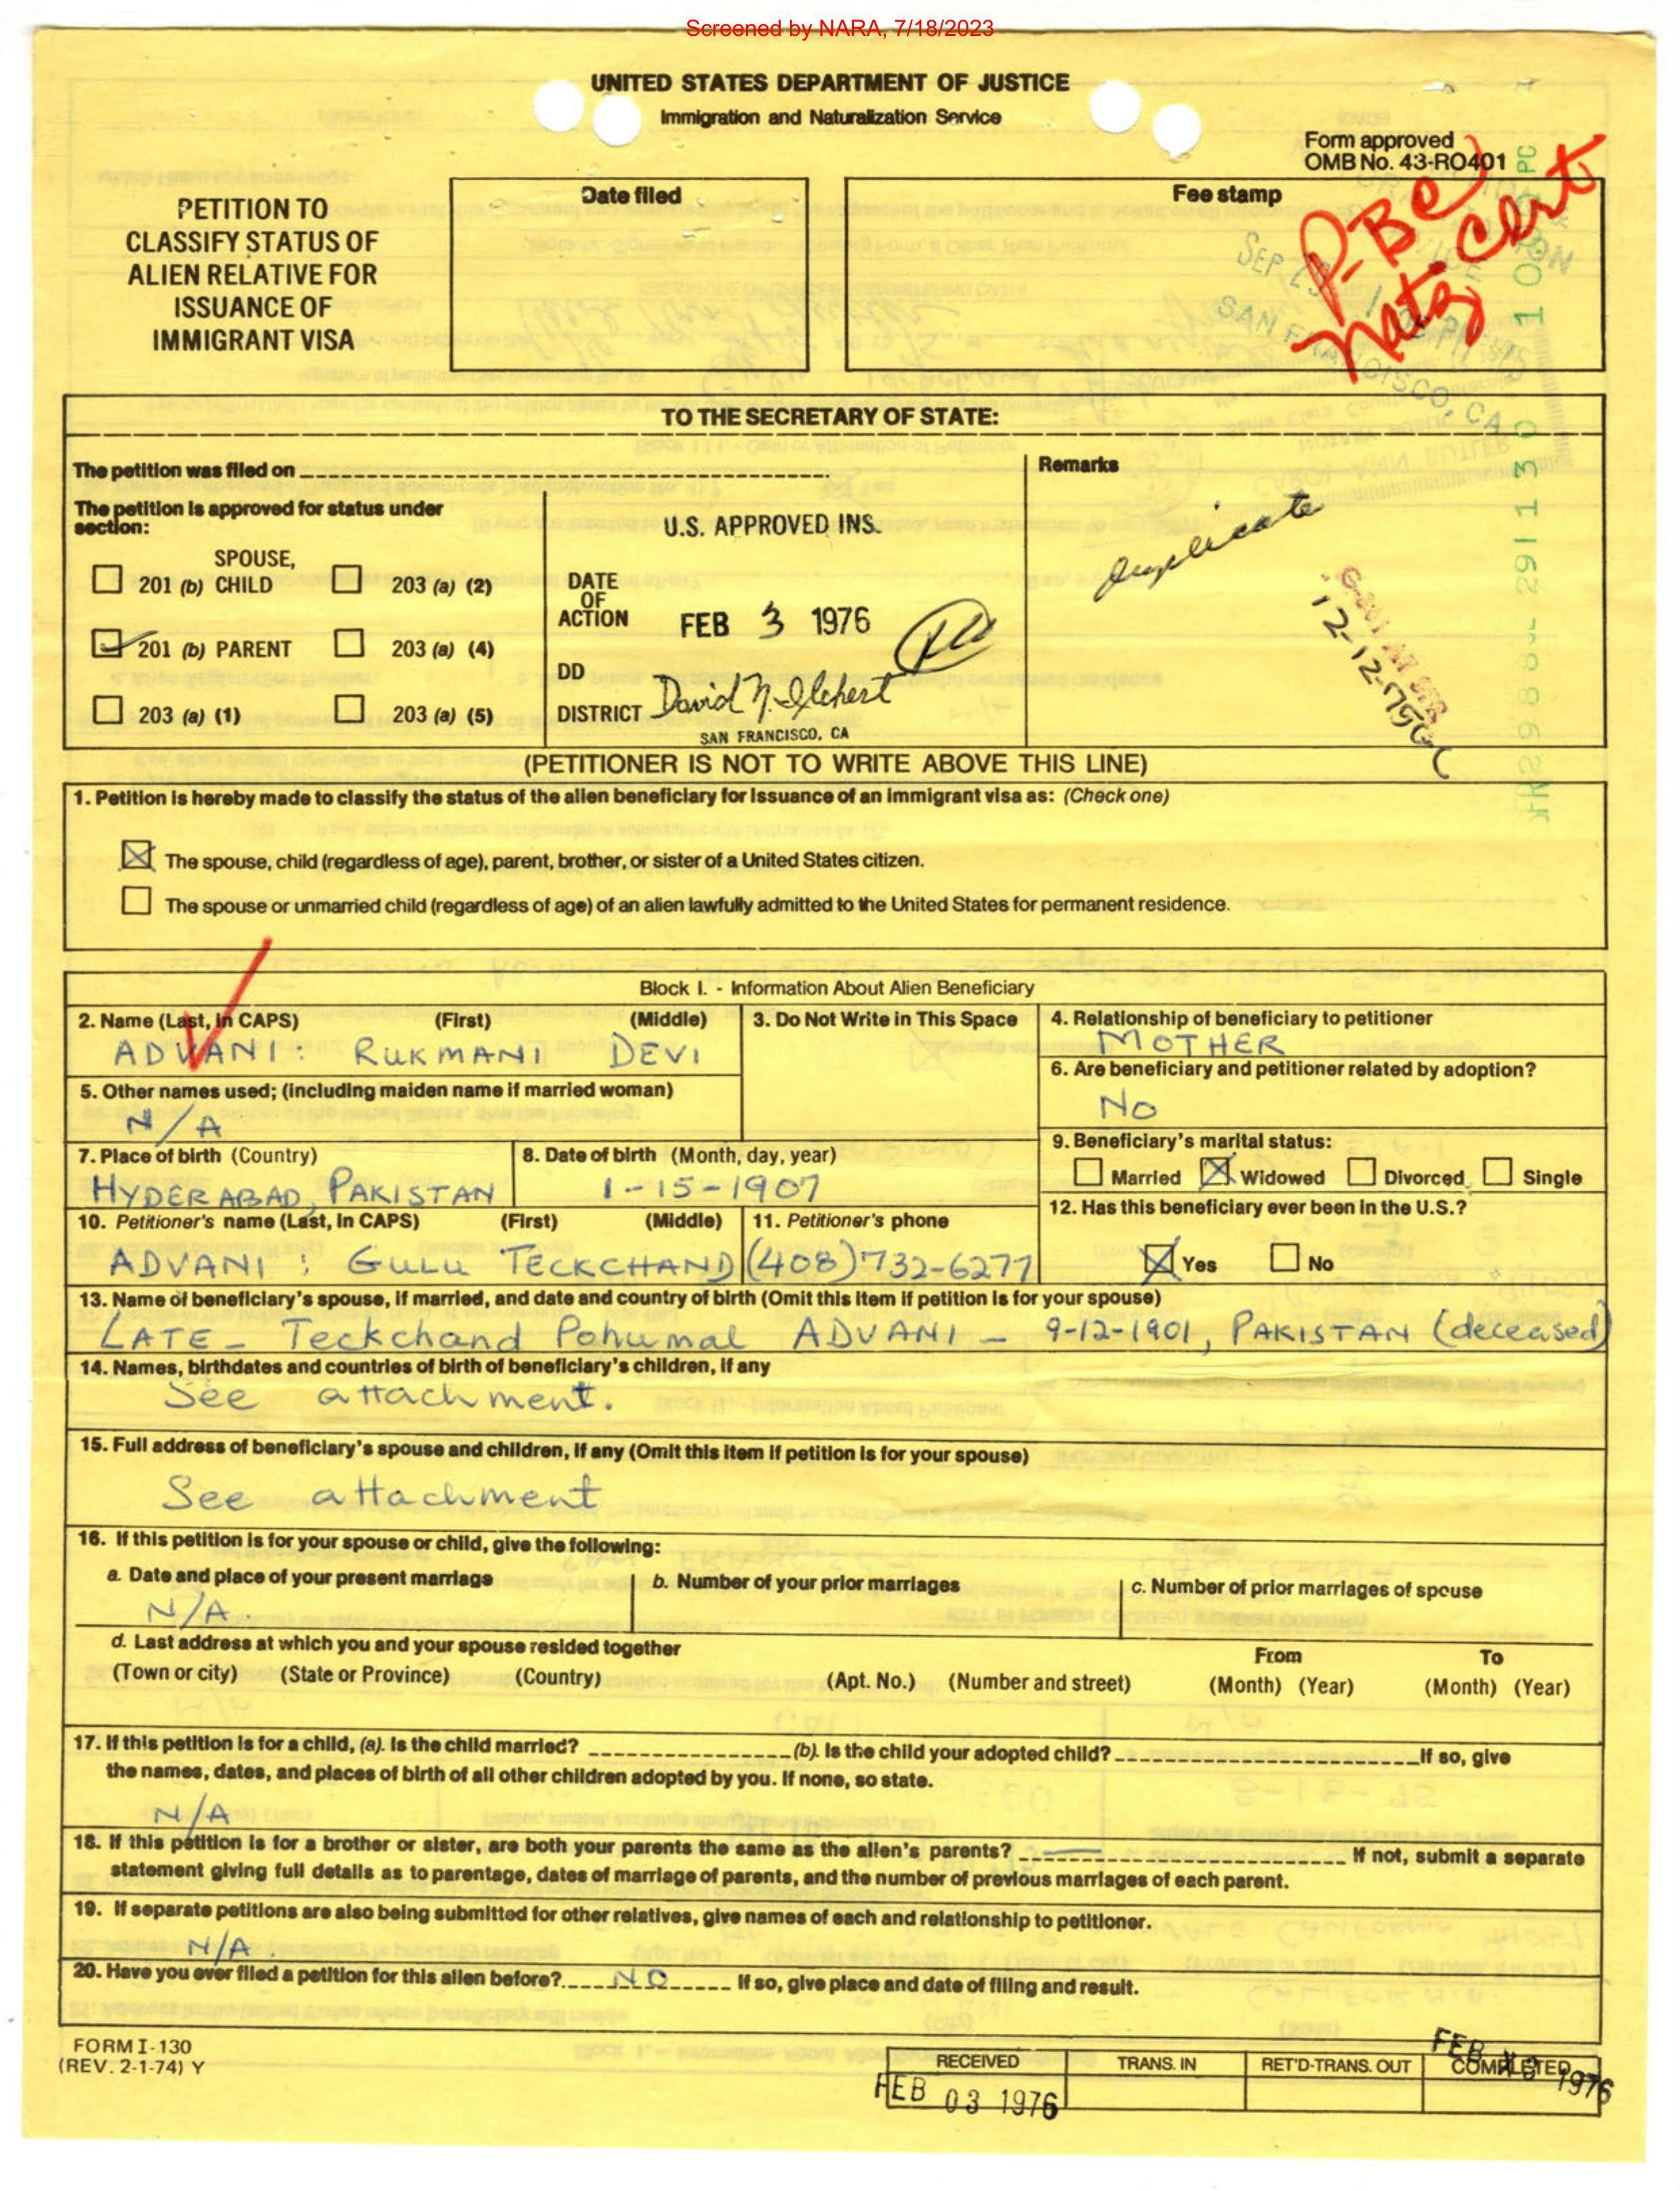 Screened by NARA, 7/18/2023
UNITED STATES DEPARTMENT OF JUSTICE
Immigration and Naturalization Service
Form approved
OMB No. 43-RO401
PETITION TO
CLASSIFY STATUS OF
ALIEN RELATIVE FOR
ISSUANCE OF
IMMIGRANT VISA
Date filed
Fee stamp
P. BC
Natz Cert
SEP
SAN FRANCISCO, CA
TO THE SECRETARY OF STATE:
The petition was filed on
Remarks
The petition is approved for status under
section:
SPOUSE,
201 (b) CHILD
203 (a) (2)
201 (b) PARENT
203 (a) (4)
203 (a) (1)
203 (a) (5)
U.S. APPROVED INS.
DATE
OF
ACTION
FEB 3 1976
DD
DISTRICT David N. Ilchert
SAN FRANCISCO, CA
duplicate
(PETITIONER IS NOT TO WRITE ABOVE THIS LINE)
1. Petition is hereby made to classify the status of the alien beneficiary for issuance of an immigrant visa as: (Check one)
The spouse, child (regardless of age), parent, brother, or sister of a United States citizen.
The spouse or unmarried child (regardless of age) of an alien lawfully admitted to the United States for permanent residence.
Block I. - Information About Alien Beneficiary
2. Name (Last, in CAPS) (First) (Middle)
ADVANI: RUKMANI DEVI
3. Do Not Write in This Space
4. Relationship of beneficiary to petitioner
MOTHER
5. Other names used; (including maiden name if married woman)
N/A
6. Are beneficiary and petitioner related by adoption?
No
7. Place of birth (Country)
HYDERABAD, PAKISTAN
8. Date of birth (Month, day, year)
1-15-1907
9. Beneficiary's marital status:
Married Widowed Divorced Single
10. Petitioner's name (Last, in CAPS) (First) (Middle)
ADVANI : GULU TECKCHAND
11. Petitioner's phone
(408)732-6277
12. Has this beneficiary ever been in the U.S.?
Yes No
13. Name of beneficiary's spouse, if married, and date and country of birth (Omit this item if petition is for your spouse)
LATE - Teckchand Pohumal ADVANI - 9-12-1901, PAKISTAN (deceased)
14. Names, birthdates and countries of birth of beneficiary's children, if any
See attachment.
15. Full address of beneficiary's spouse and children, if any (Omit this item if petition is for your spouse)
See attachment
16. If this petition is for your spouse or child, give the following:
a. Date and place of your present marriage
N/A.
b. Number of your prior marriages
c. Number of prior marriages of spouse
d. Last address at which you and your spouse resided together
From To
(Town or city) (State or Province) (Country) (Apt. No.) (Number and street) (Month) (Year) (Month) (Year)
17. If this petition is for a child, (a). Is the child married? (b). Is the child your adopted child? If so, give
the names, dates, and places of birth of all other children adopted by you. If none, so state.
N/A
18. If this petition is for a brother or sister, are both your parents the same as the alien's parents? If not, submit a separate
statement giving full details as to parentage, dates of marriage of parents, and the number of previous marriages of each parent.
19. If separate petitions are also being submitted for other relatives, give names of each and relationship to petitioner.
N/A.
20. Have you ever filed a petition for this alien before? NO If so, give place and date of filing and result.
FORM I-130
(REV. 2-1-74) Y
RECEIVED
FEB 03 1976
TRANS. IN
RET'D-TRANS. OUT
COMPLETED
FEB 1976